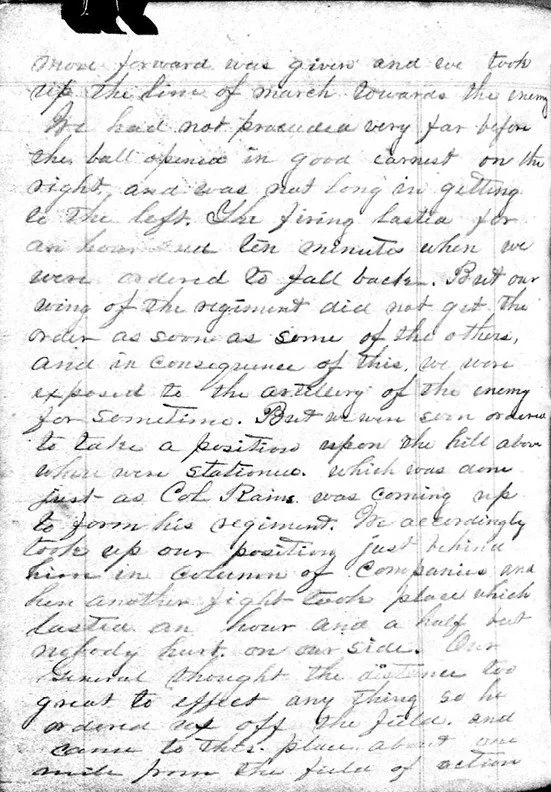 move forward was given and we took
up the line of march towards the enemy
We had not proceeded very far before
the ball opened in good earnest on the
right, and was not long in getting
to the left. The firing lasted for
an hour and ten minutes when we
were ordered to fall back. But our
wing of the regiment did not get the
order as soon as some of the others,
and in consequence of this, we were
exposed to the artillery of the enemy
for sometime. But we were soon ordered
to take a position upon the hill above
where were stationed. which was done
just as Col. Rains was coming up
to form his regiment. We accordingly
took up our position just behind
him in column of companies and
hen another fight took place which
lasted an hour and a half but
nobody hurt on our side. Our
General thought the distance too
great to effect any thing so he
ordered us off the field. and
came to this place about one
mile from the field of action